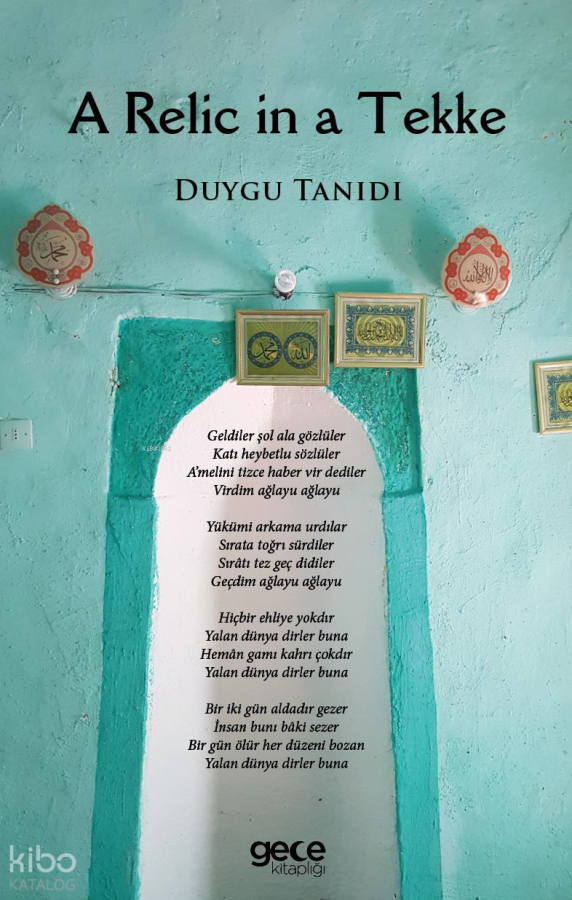 A Relic in a Tekke
DUYGU TANIDI
محمد
الله
محمد
Geldiler şol ala gözlüler
Katı heybetlu sözlüler
A'melini tizce haber vir dediler
Virdim ağlayu ağlayu
Yükümi arkama urdılar
Sırata toğrı sürdiler
Sırâtı tez geç didiler
Geçdim ağlayu ağlayu
Hiçbir ehliye yokdır
Yalan dünya dirler buna
Hemân gamı kahrı çokdır
Yalan dünya dirler buna
Bir iki gün aldadır gezer
İnsan bunı bâki sezer
Bir gün ölür her düzeni bozan
Yalan dünya dirler buna
gece
kitaplığı
kibo
KATALOG